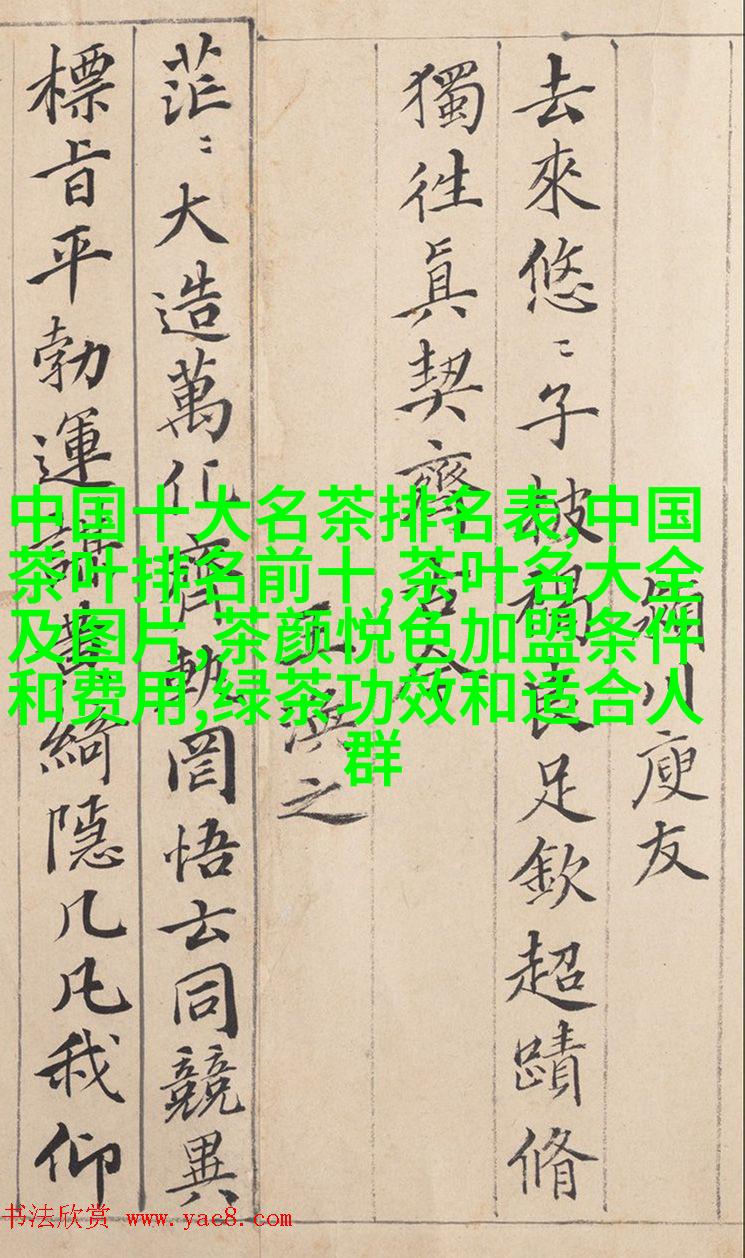 川庾友
去來悠〻子披褐良足欽超蹟脩
獨往眞契齊古今
王之
茫〻大造萬化齊軌罔悟玄同競異
標旨平勃運謀黃綺隱几凡我仰
中国十大名茶排名表,中国
茶叶排名前十,茶叶名大全
及图片,茶颜悦色加盟条件
和费用,绿茶功效和适合人
群
书法欣赏 www.yac8.com